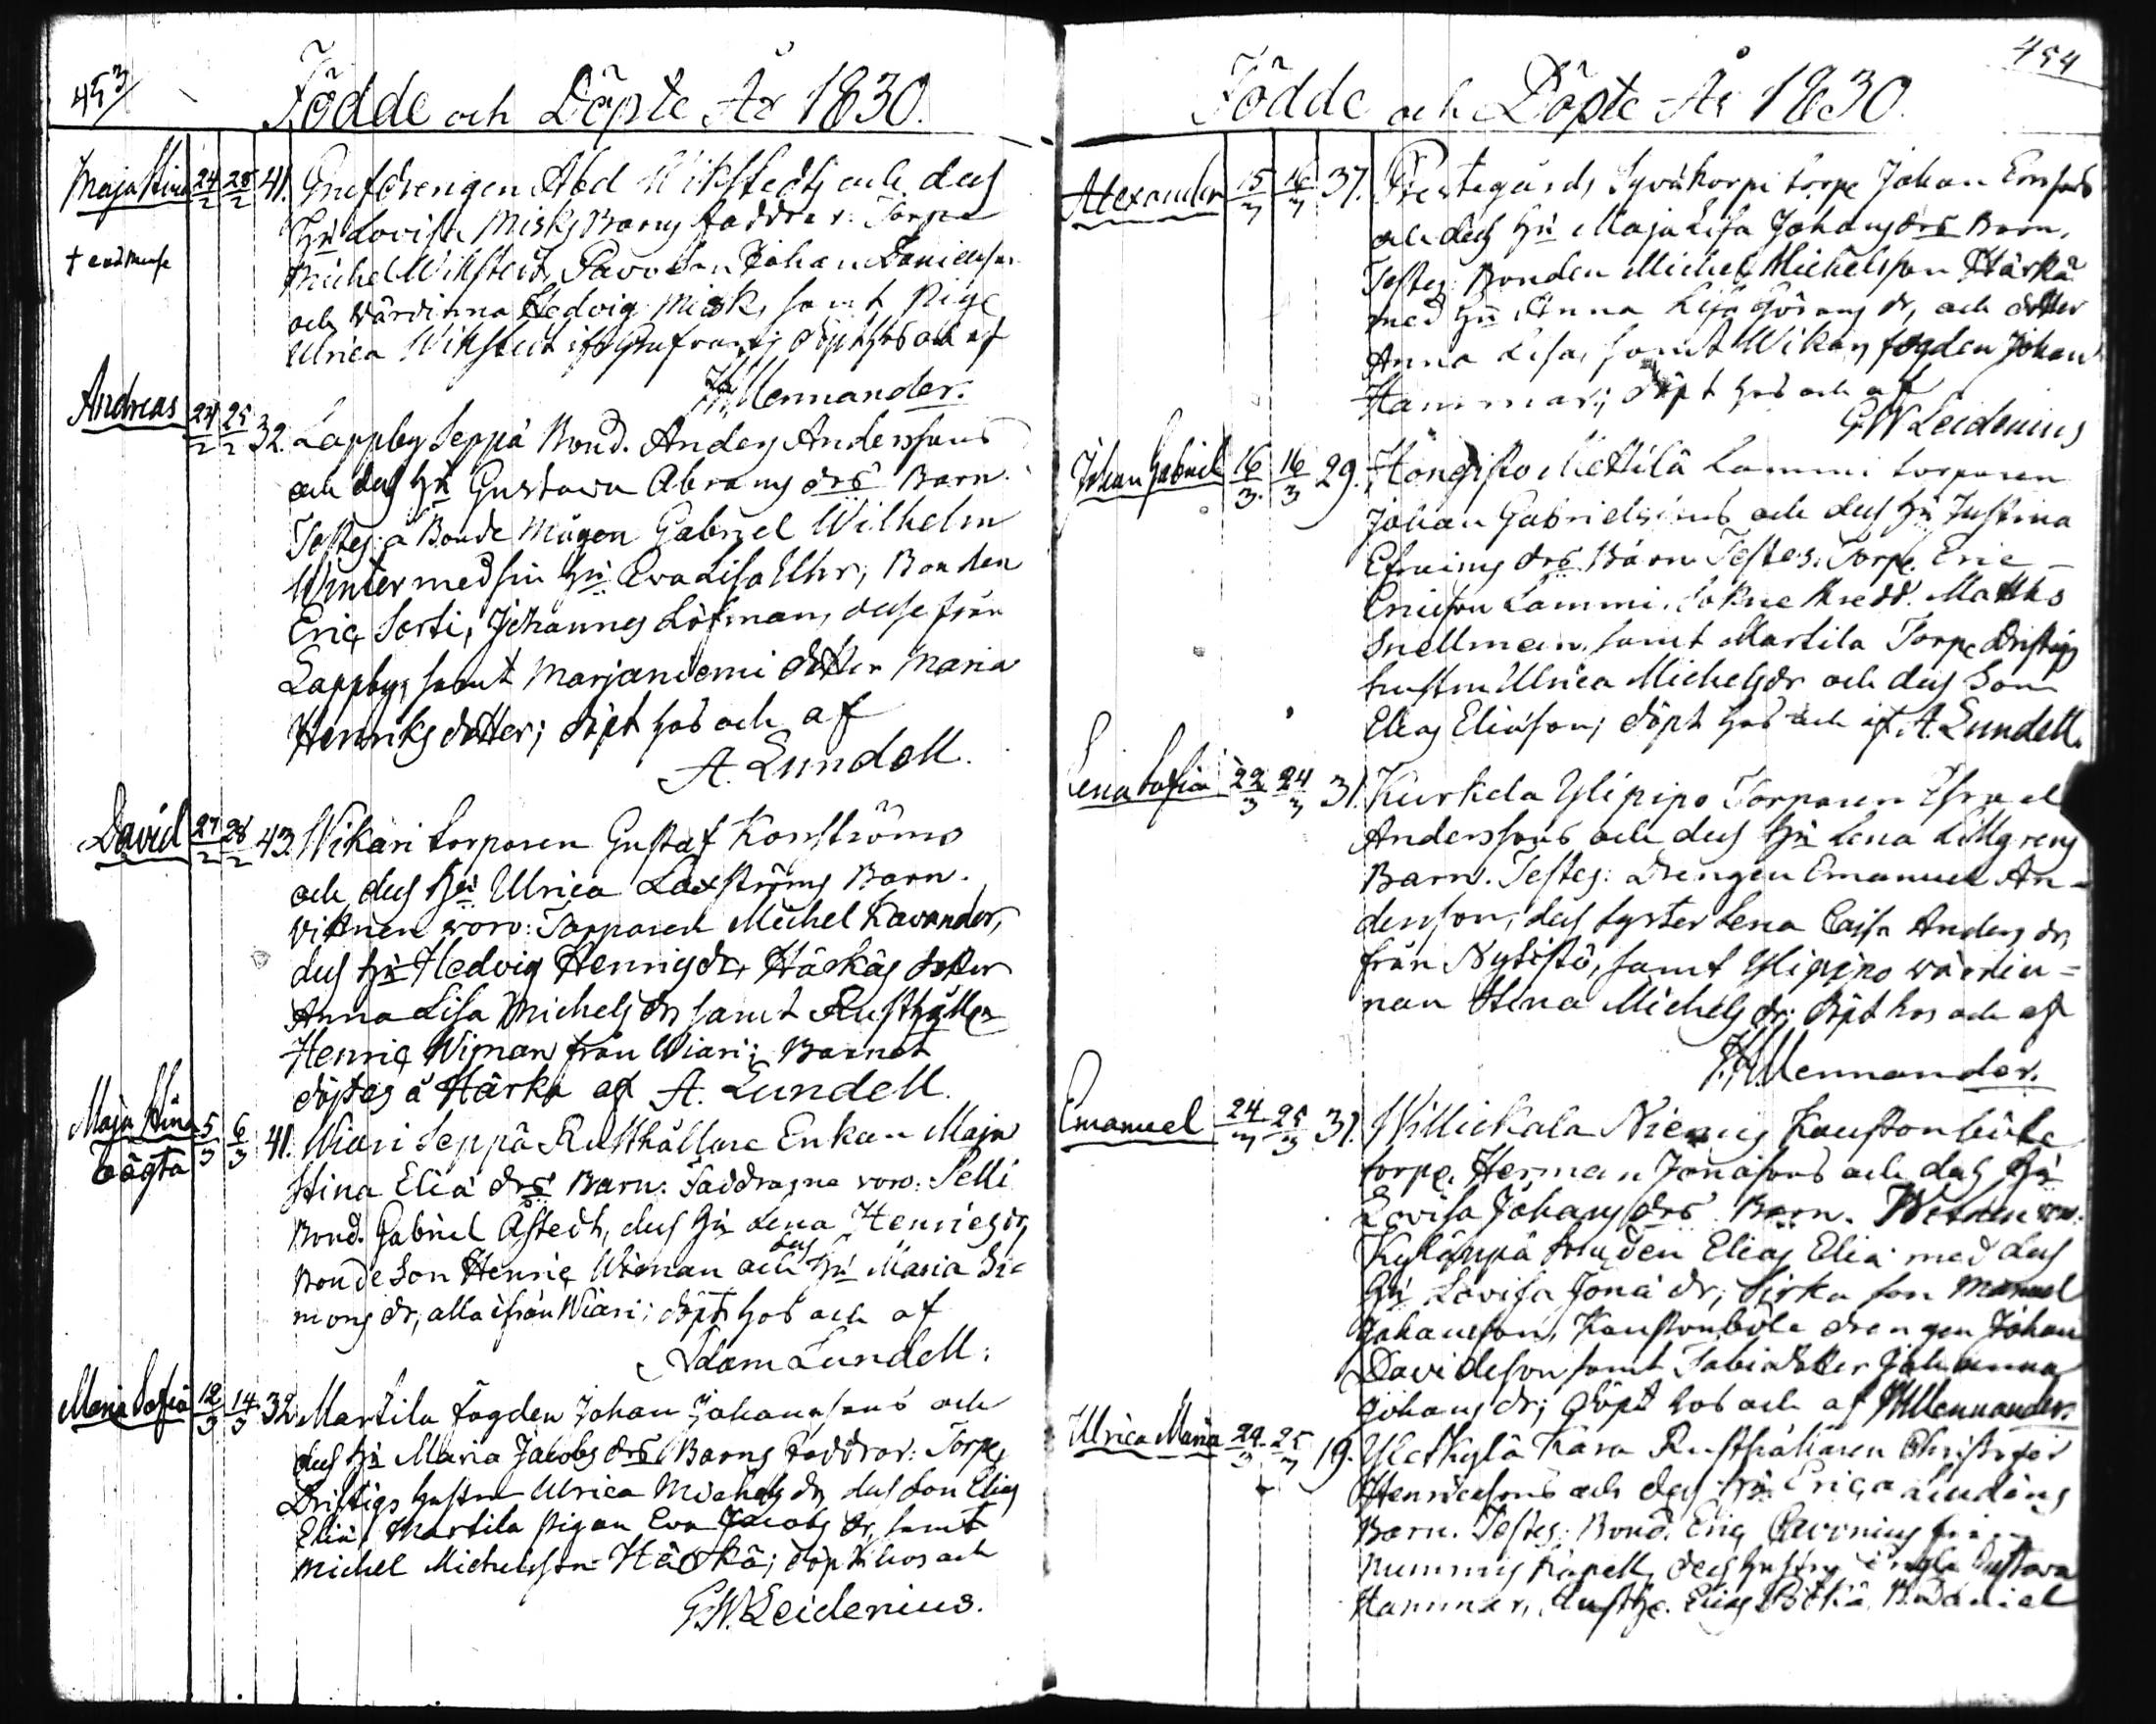 453
Födde och Döpte År 1830.
Maja Stina 24/2 28/2 41. Grufdrengen Abel Wikstedts och dess
Hu Lovisa Misks Barn; faddrar: Torpa
† eod. mense
Michel Wikstedt, Johan Danielsson
och Värdinna Hedvig Misk, samt Piga
Ulrica Wikstedt döpt hos och af
Mennander.
Andreas 24/2 25/2 32. Lappby Seppä Bond. Anders Anderssons
och dess Hu Gustava Abrams drs Barn.
Testes: Bonde Mågen Gabriel Wilhelm
Winter med sin Hu Eva Lisa Uhr; Bonden
Eric Sorti, Johannes Löfman, desse från
Lappby, samt Marjaniemi dotter Maria
Henriks dotter; döpt hos och af
A. Lundell.
David 27/2 28/2 43. Wikari torparen Gustaf Konströms
och dess Hu Ulrica Laxströms Barn.
Vittnen voro: Torparen Michel Kavander,
dess Hu Hedvig Henrigs dr, Härkäs dotter
Anna Lisa Michels dr, samt Rusthållen
Henric Wiman från Wiari; Barnet
döptes å Härkä af A. Lundell.
Maja Stina 5/3 6/3 41. Wiari Seppä Rusthållare Enkan Maja
oägta
Stina Eliæ drs Barn. Faddrarne voro: Pelli
Bond. Gabriel Åstedt, dess Hu Lena Henrics dr,
Bonde Son Henric Wiman och dess Hu Maria Si-
mons dr, alla ifrån Wiari; döpt hos och af
Adam Lundell.
Maria Sofia 12/3 14/3 32. Martila fogden Johan Johanssons och
dess Hu Maria Jacobs drs Barns faddrar: Torp.
Dristigs hustru Ulrica Michels dr, dess Son Elias
Eliæ, Martila pigan Eva Jacobs dr, samt
Michel Michelsson Härkä; döpt hos och
G.W. Leidenius.
454
Födde och Döpte År 1830.
Alexander 15/3 16/3 37. Prestegårds Syväkorpi torp. Johan Ericssons
och dess Hu Maja Lisa Johans drs Barn.
Testes: Bonden Michel Michelsson Härkä
med Hu Anna Lisa Görans dr, och dotter
Anna Lisa, samt Wikars fogden Johan
Hammar; döpt hos och af
G.W Leidenius
Johan Gabriel 16/3 16/3 29. Hongisto Mettilä Lammi torparen
Johan Gabrielssons och dess Hu Justina
Efraims drs Barn. Testes: Torp. Eric
Ericsson Lammi, Sokne Skredd. Matths
Snellman, samt Martila Torp. Dristigs
hustru Ulrica Michels dr och dess Son
Elias Eliæson; döpt hos och af A. Lundell.
Lena Sofia 22/3 24/3 31. Kurkela Ylipipo Torparen Israel
Anderssons och dess Hu Lena Lillgrens
Barn. Testes: Drengen Emanuel An-
dersson, dess syster Lena Caisa Anders dr,
från Nybistö, samt Ylipipo värdin-
nan Stina Michels dr; döpt hos och af
Mennander.
Emanuel 24/3 25/3 37. Willickala Niemis Kaustonböle
torp. Herman Jonæsons och dess Hu
Lovisa Johans drs Barn. Witnen voro:
Kylänpä Bonden Elias Eliæ med dess
Hu Lovisa Jonæ dr, Sirka son Manuel
Johansson, Kaustonböle drengen Johan
Davidsson samt dotter Johanna
Johans dr; döpt hos och af Mennander.
Ulrica Maria 24/3 25/3 19. Yletkylä Kära Rusthållaren Christofer
Henricssons och dess Hu Erica Lindéns
Barn. Testes: Bond. Eric Pavonius från
Nummis Kapell, dess hustru Gustava
Hammar, Rusth. Elias B. Daniel